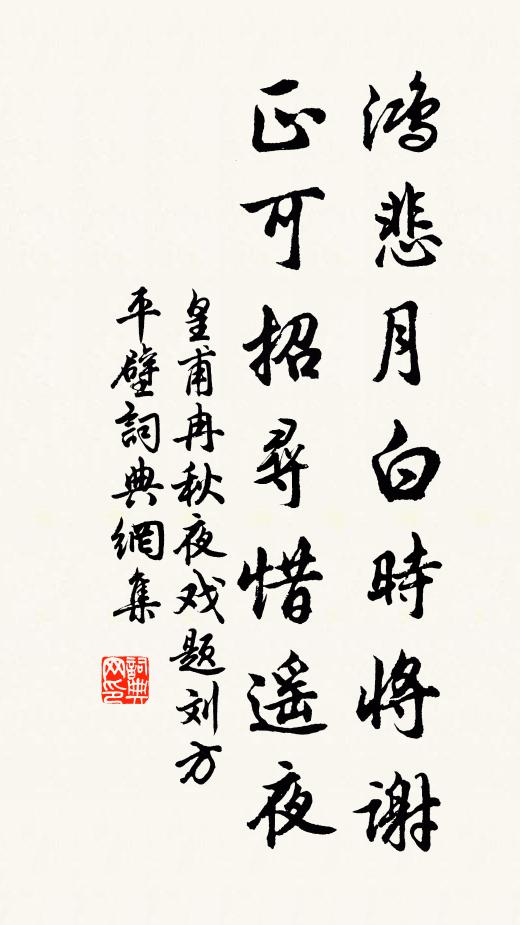 鴻悲月白時将谢
正可招尋惜遥夜
皇甫冉秋夜戏题刘方
平壁詞典網集
詞典网印